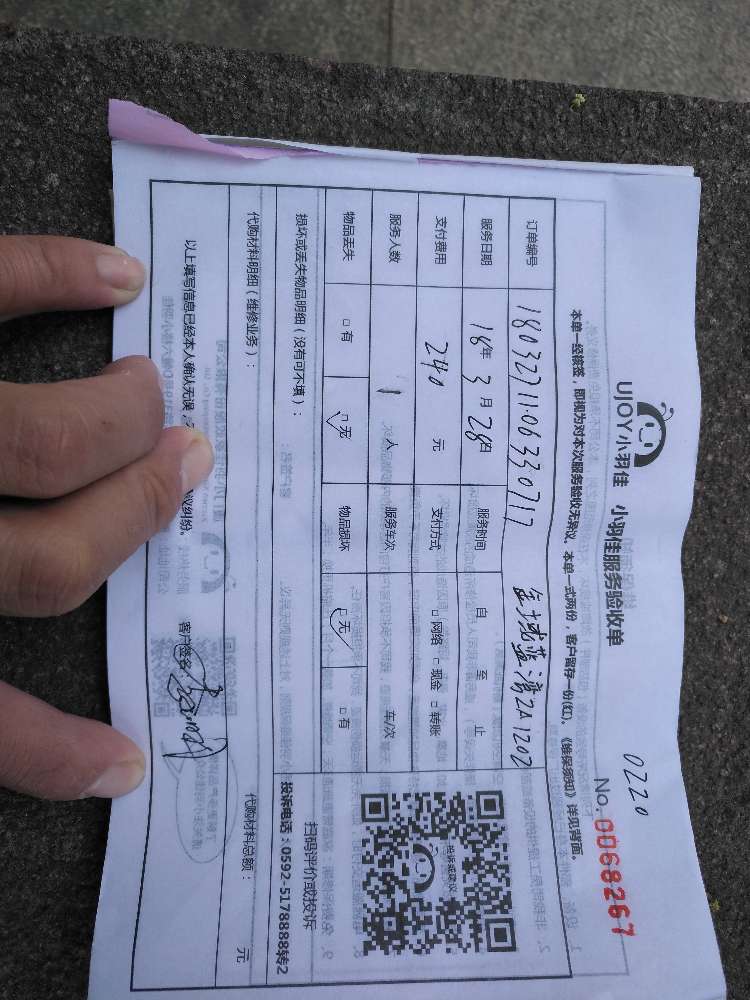 0220
UJOY小羽佳 小羽佳服务验收单
No. 0068267
本单一经核签，即视为对本次服务验收无异议。本单一式两份，客户留存一份(红)。《维保须知》详见背面。
订单编号 1803271106330717 金域蓝湾2A1202
服务日期 18年 3月 28日 服务时间 自 至 止
支付费用 240 元 支付方式 □网络 □现金 □转账
服务人数 1 人 服务车次 车/次
物品丢失 □有 □无 物品损坏 □无 □有
损坏或丢失物品明细（没有可不填）：
代购材料明细（维修业务）： 代购材料总额： 元
投诉或建议
扫码评价或投诉
投诉电话：0592-5178888转2
以上填写信息已经本人确认无误，
议纠纷。 客户签名：